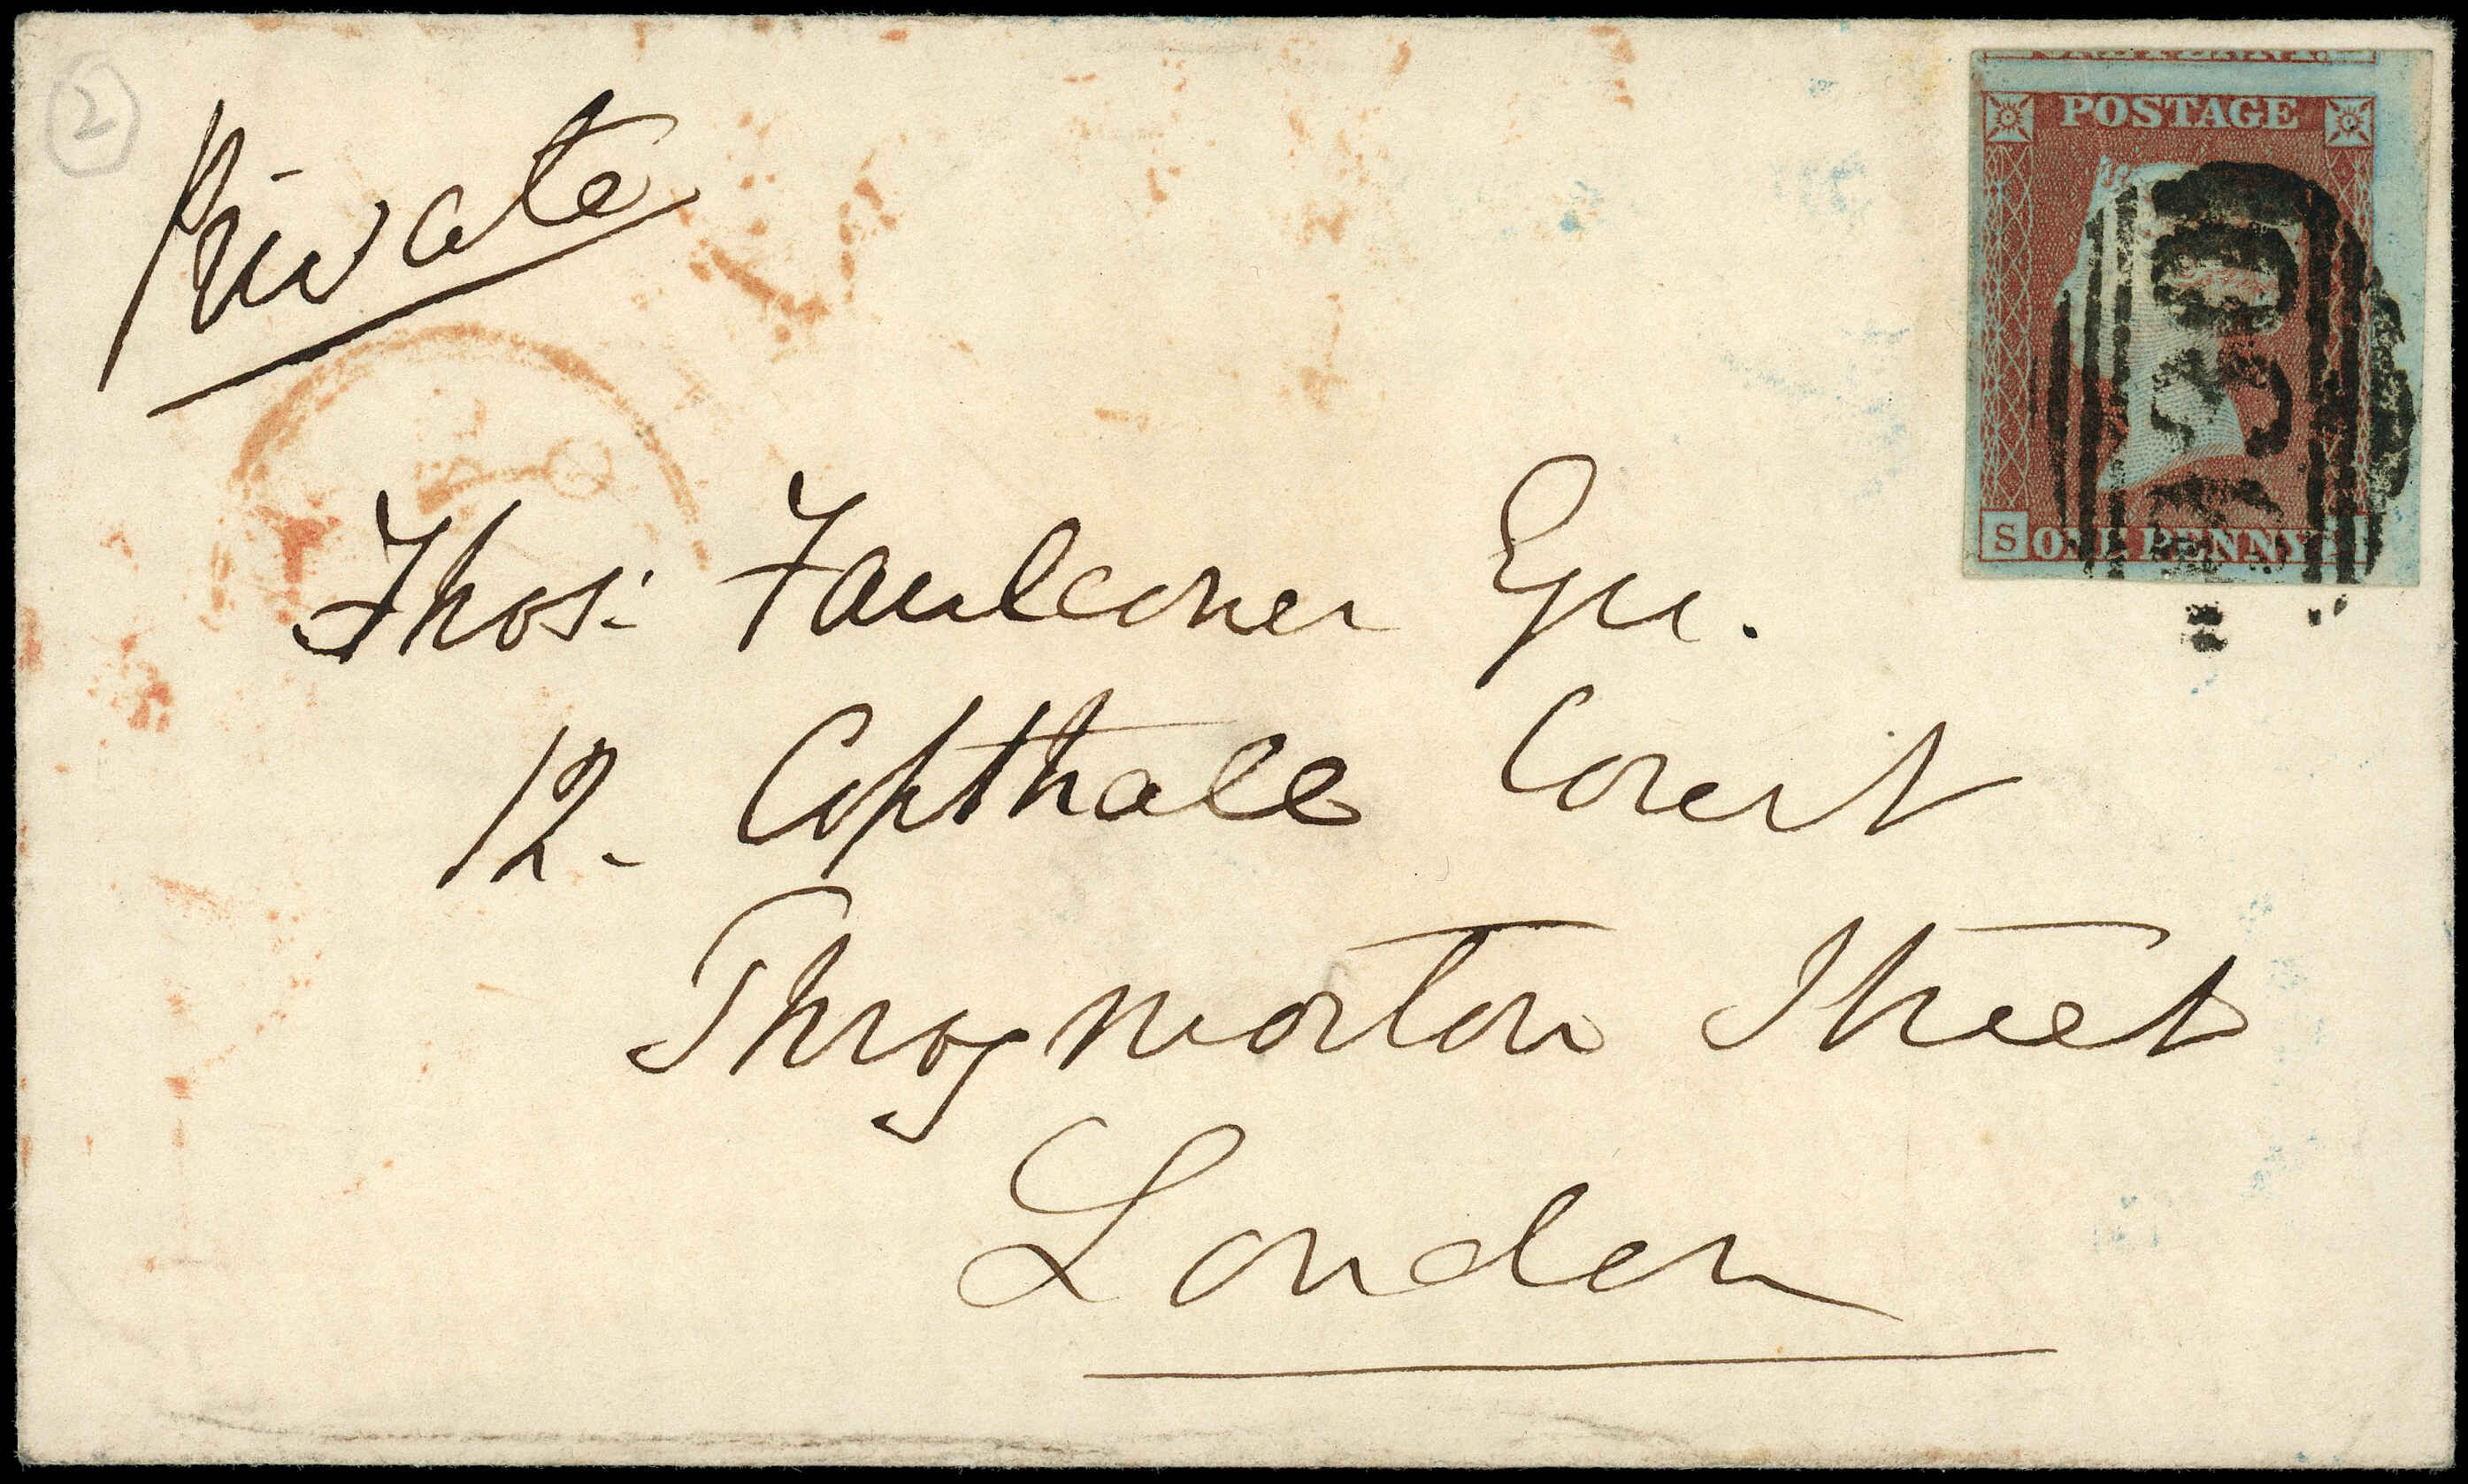 2
Private
POSTAGE
S ONE PENNY
Thos: Faulconer Esqr.
12. Copthall Court
Throgmorton Street
London